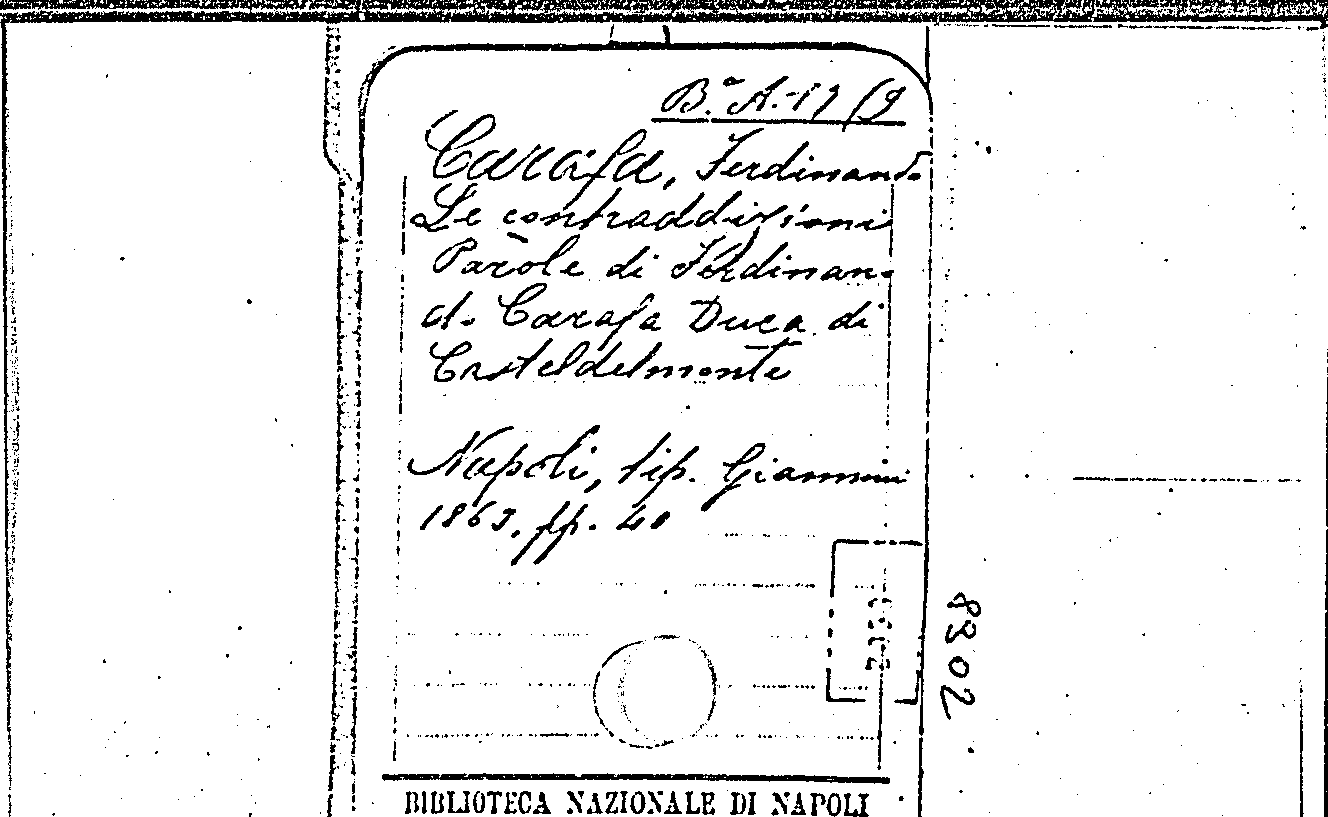 B.a A.-19/9
Carafa, Ferdinando
Le contraddizioni
Parole di Ferdinan-
do Carafa Duca di
Casteldelmonte
Napoli, tip. Giannini
1863, pp. 40
8302
BIBLIOTECA NAZIONALE DI NAPOLI